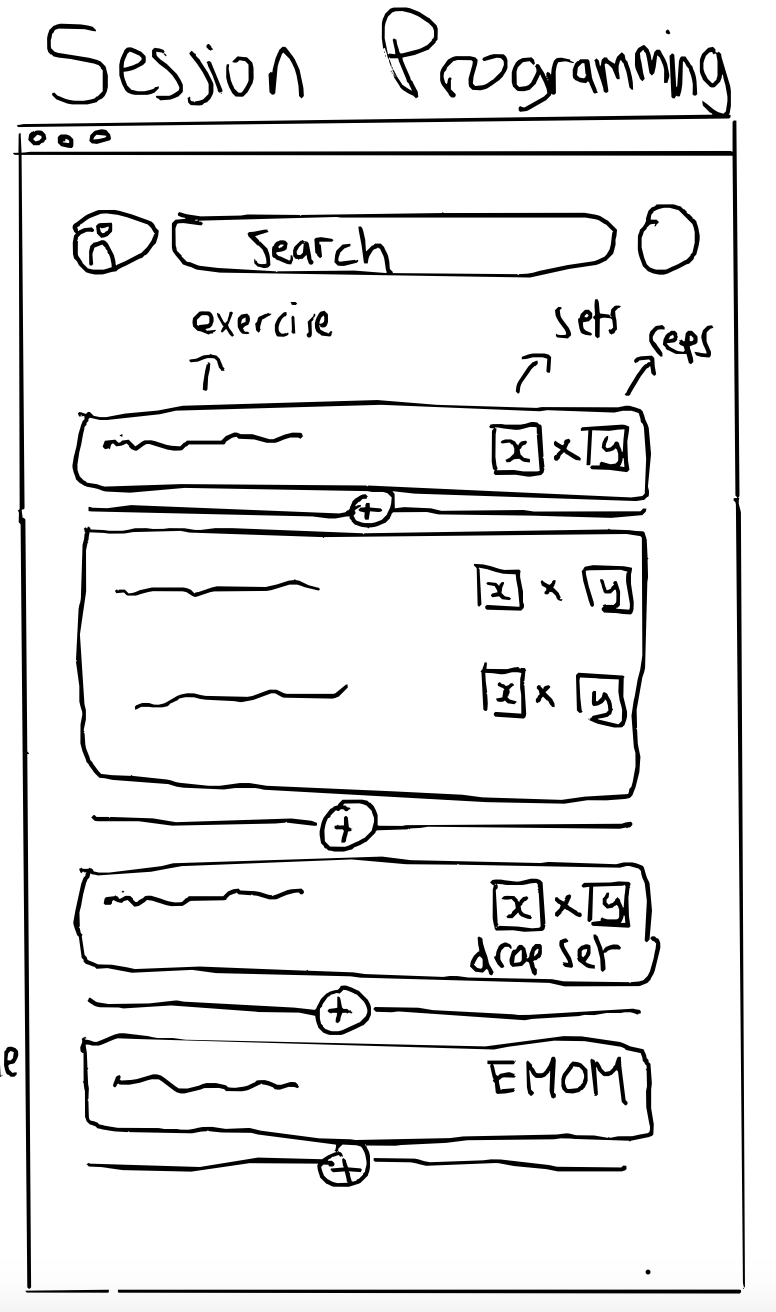 Session Programming
Search
exercise sets reps
x x y
+
x x y
x x y
+
x x y
drop set
+
EMOM
+